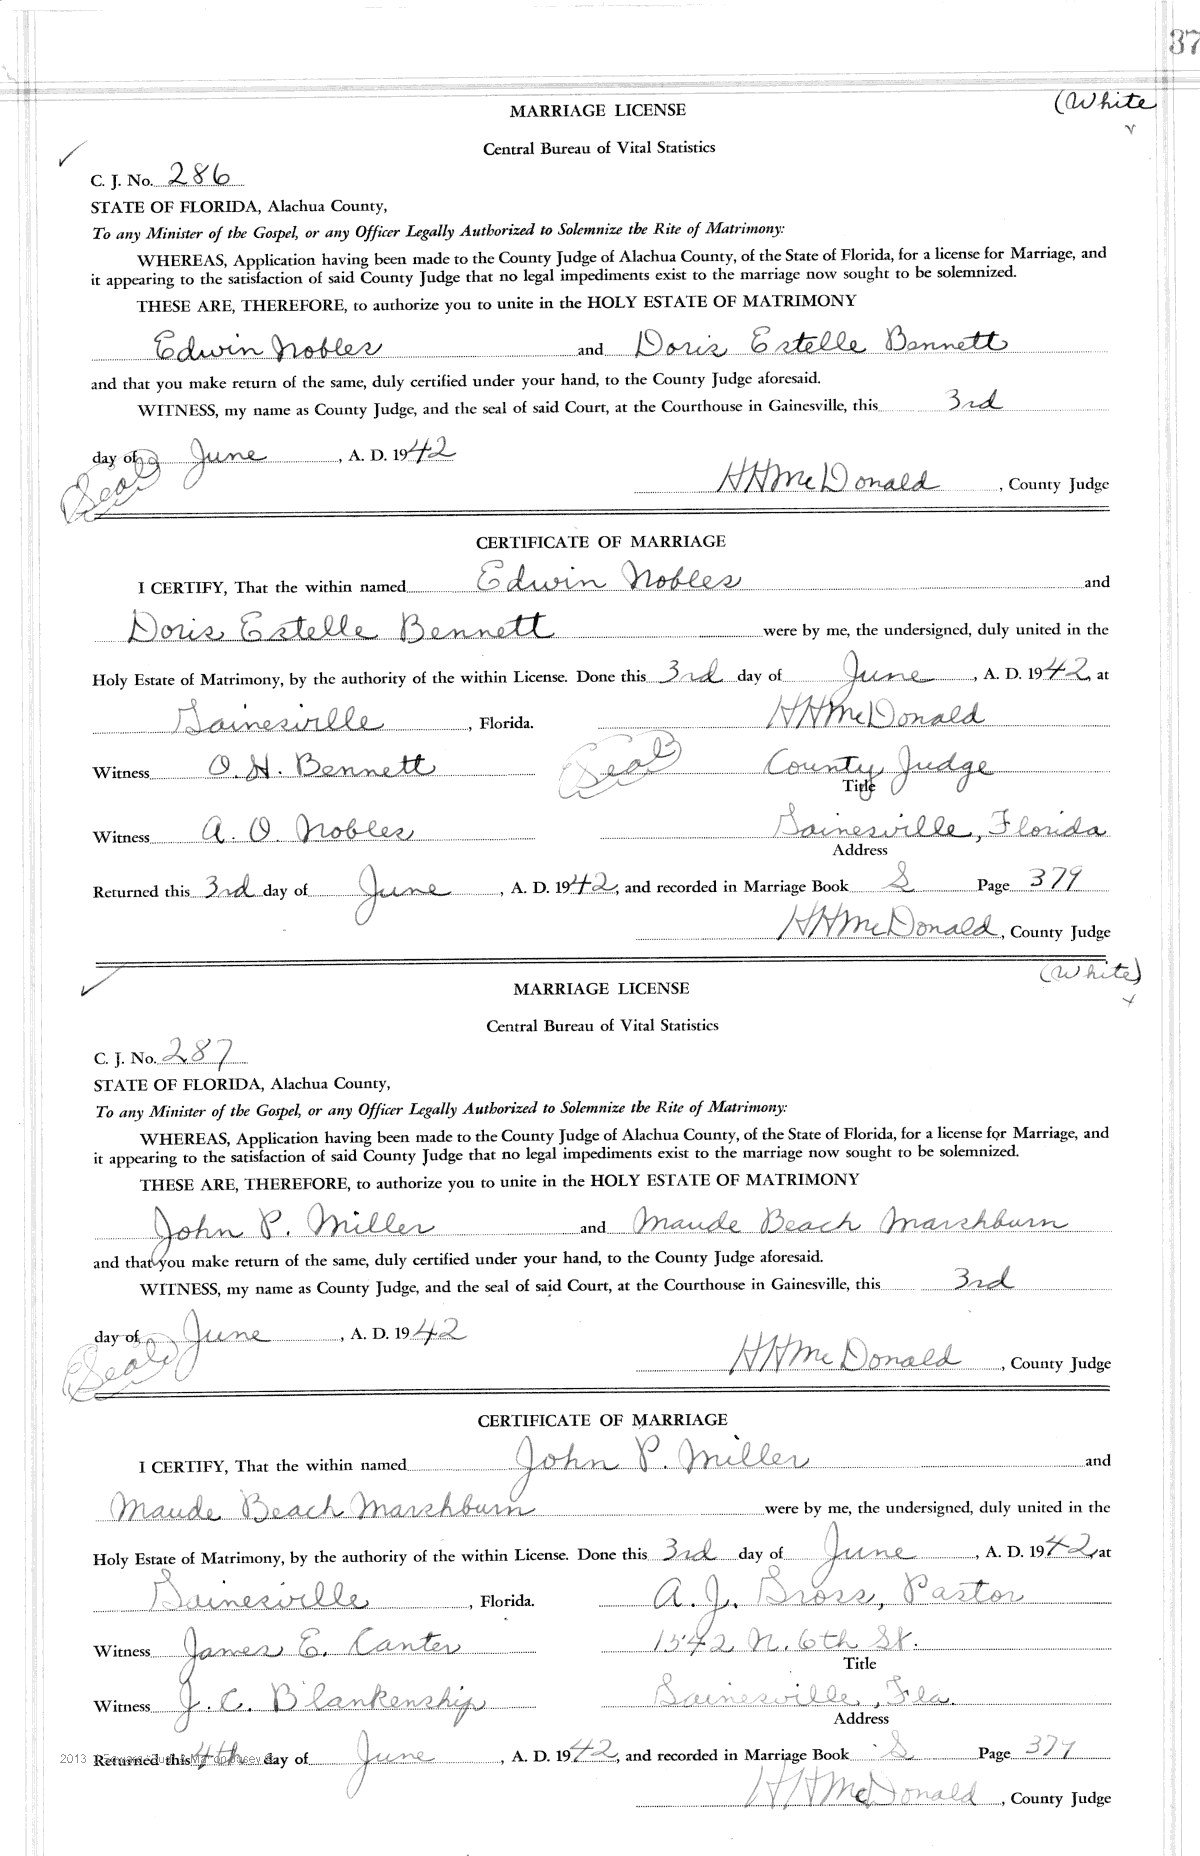 37
MARRIAGE LICENSE
(White
Central Bureau of Vital Statistics
C. J. No. 286
STATE OF FLORIDA, Alachua County,
To any Minister of the Gospel, or any Officer Legally Authorized to Solemnize the Rite of Matrimony:
WHEREAS, Application having been made to the County Judge of Alachua County, of the State of Florida, for a license for Marriage, and
it appearing to the satisfaction of said County Judge that no legal impediments exist to the marriage now sought to be solemnized.
THESE ARE, THEREFORE, to authorize you to unite in the HOLY ESTATE OF MATRIMONY
Edwin Nobles and Doris Estelle Bennett
and that you make return of the same, duly certified under your hand, to the County Judge aforesaid.
WITNESS, my name as County Judge, and the seal of said Court, at the Courthouse in Gainesville, this 3rd
day of June, A. D. 1942
(Seal) HHMcDonald, County Judge
CERTIFICATE OF MARRIAGE
I CERTIFY, That the within named Edwin Nobles and
Doris Estelle Bennett were by me, the undersigned, duly united in the
Holy Estate of Matrimony, by the authority of the within License. Done this 3rd day of June, A. D. 1942, at
Gainesville, Florida. HHMcDonald
Witness O. H. Bennett (Seal) County Judge
Title
Witness A. O. Nobles Gainesville, Florida
Address
Returned this 3rd day of June, A. D. 1942, and recorded in Marriage Book S Page 379
HHMcDonald, County Judge
(White)
MARRIAGE LICENSE
Central Bureau of Vital Statistics
C. J. No. 287
STATE OF FLORIDA, Alachua County,
To any Minister of the Gospel, or any Officer Legally Authorized to Solemnize the Rite of Matrimony:
WHEREAS, Application having been made to the County Judge of Alachua County, of the State of Florida, for a license for Marriage, and
it appearing to the satisfaction of said County Judge that no legal impediments exist to the marriage now sought to be solemnized.
THESE ARE, THEREFORE, to authorize you to unite in the HOLY ESTATE OF MATRIMONY
John P. Miller and Maude Beach Marshburn
and that you make return of the same, duly certified under your hand, to the County Judge aforesaid.
WITNESS, my name as County Judge, and the seal of said Court, at the Courthouse in Gainesville, this 3rd
day of June, A. D. 1942
(Seal) HHMcDonald, County Judge
CERTIFICATE OF MARRIAGE
I CERTIFY, That the within named John P. Miller and
Maude Beach Marshburn were by me, the undersigned, duly united in the
Holy Estate of Matrimony, by the authority of the within License. Done this 3rd day of June, A. D. 1942, at
Gainesville, Florida. A. J. Gross, Pastor
Witness James E. Canter 1542 N. 6th St.
Title
Witness J. C. Blankenship Gainesville, Fla.
Address
2013
Returned this 4th day of June, A. D. 1942, and recorded in Marriage Book S Page 379
HHMcDonald, County Judge